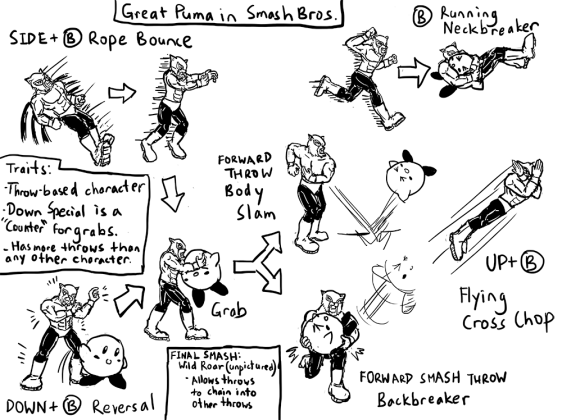 Great Puma in Smash Bros.
SIDE+ B Rope Bounce
B Running
Neckbreaker
Traits:
-Throw-based character
-Down Special is a
"Counter" for grabs.
-Has more throws than
any other character.
FORWARD
THROW
Body
Slam
UP+ B
Flying
Cross Chop
Grab
DOWN+ B Reversal
FINAL SMASH:
Wild Roar (unpictured)
-Allows throws
to chain into
other throws
FORWARD SMASH THROW
Backbreaker